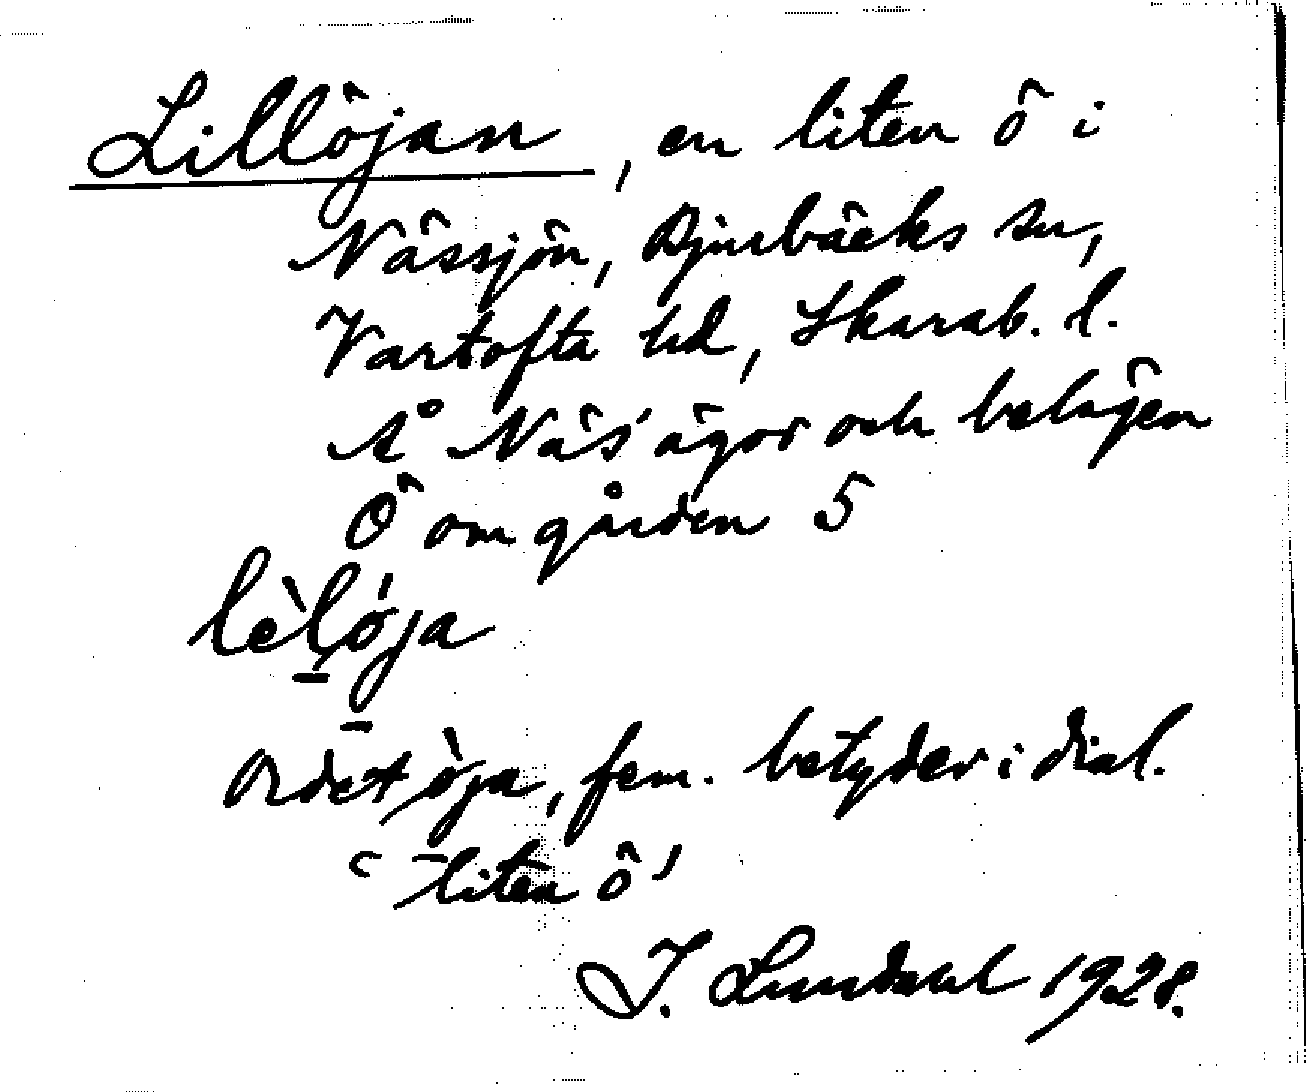 Lillöjan, en liten ö i
Nässjön, Djurbäcks sn,
Vartofta hd, Skarab. l.
Å Näs' ägor och belägen
Ö om gården 5
lèlöja
Ordet öja, fem. betyder i dial.
'liten ö'
I. Lundahl 1928.